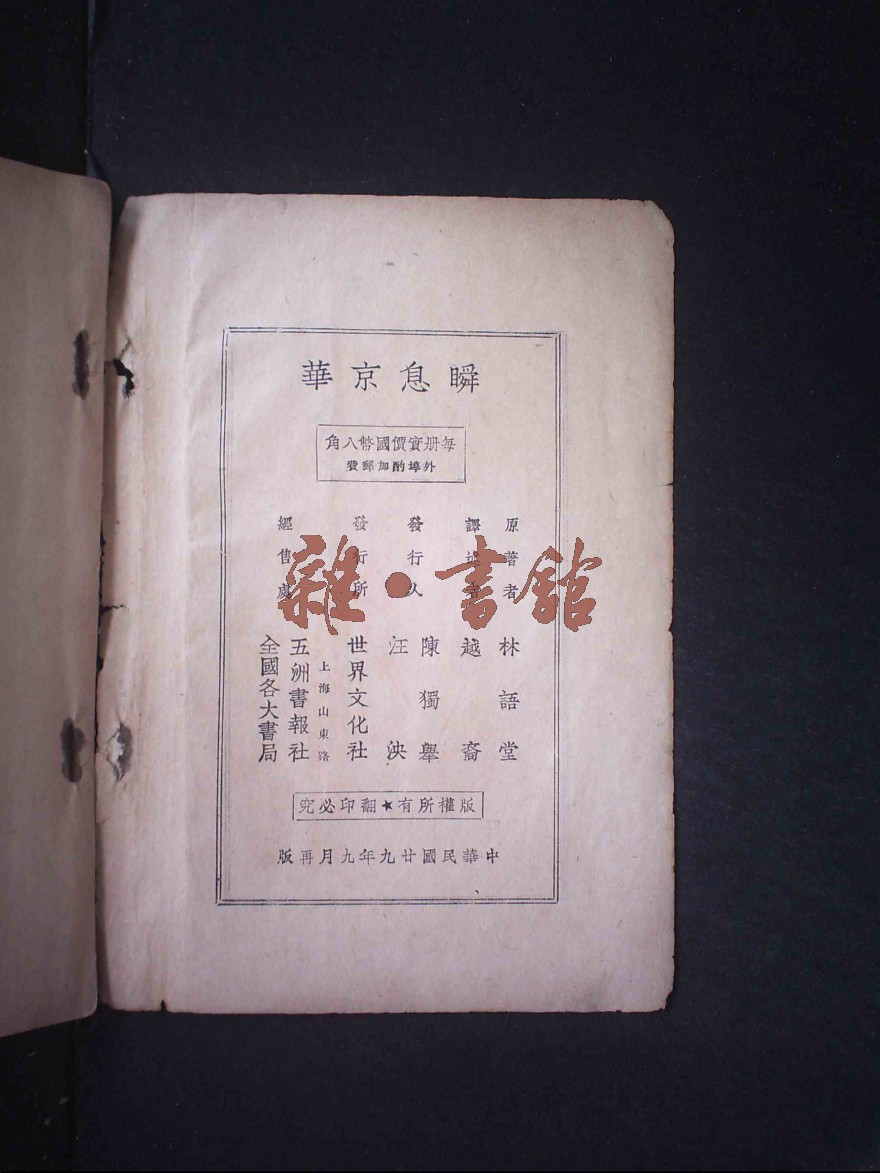 瞬息京華
每册實價國幣八角
外埠酌加郵費
原著者 林語堂
譯述者 越裔
發行人 陳獨舉
汪泱
發行所 世界文化社
上海山東路
經售處 五洲書報社
全國各大書局
版權所有★翻印必究
中華民國廿九年九月再版
雜·書館